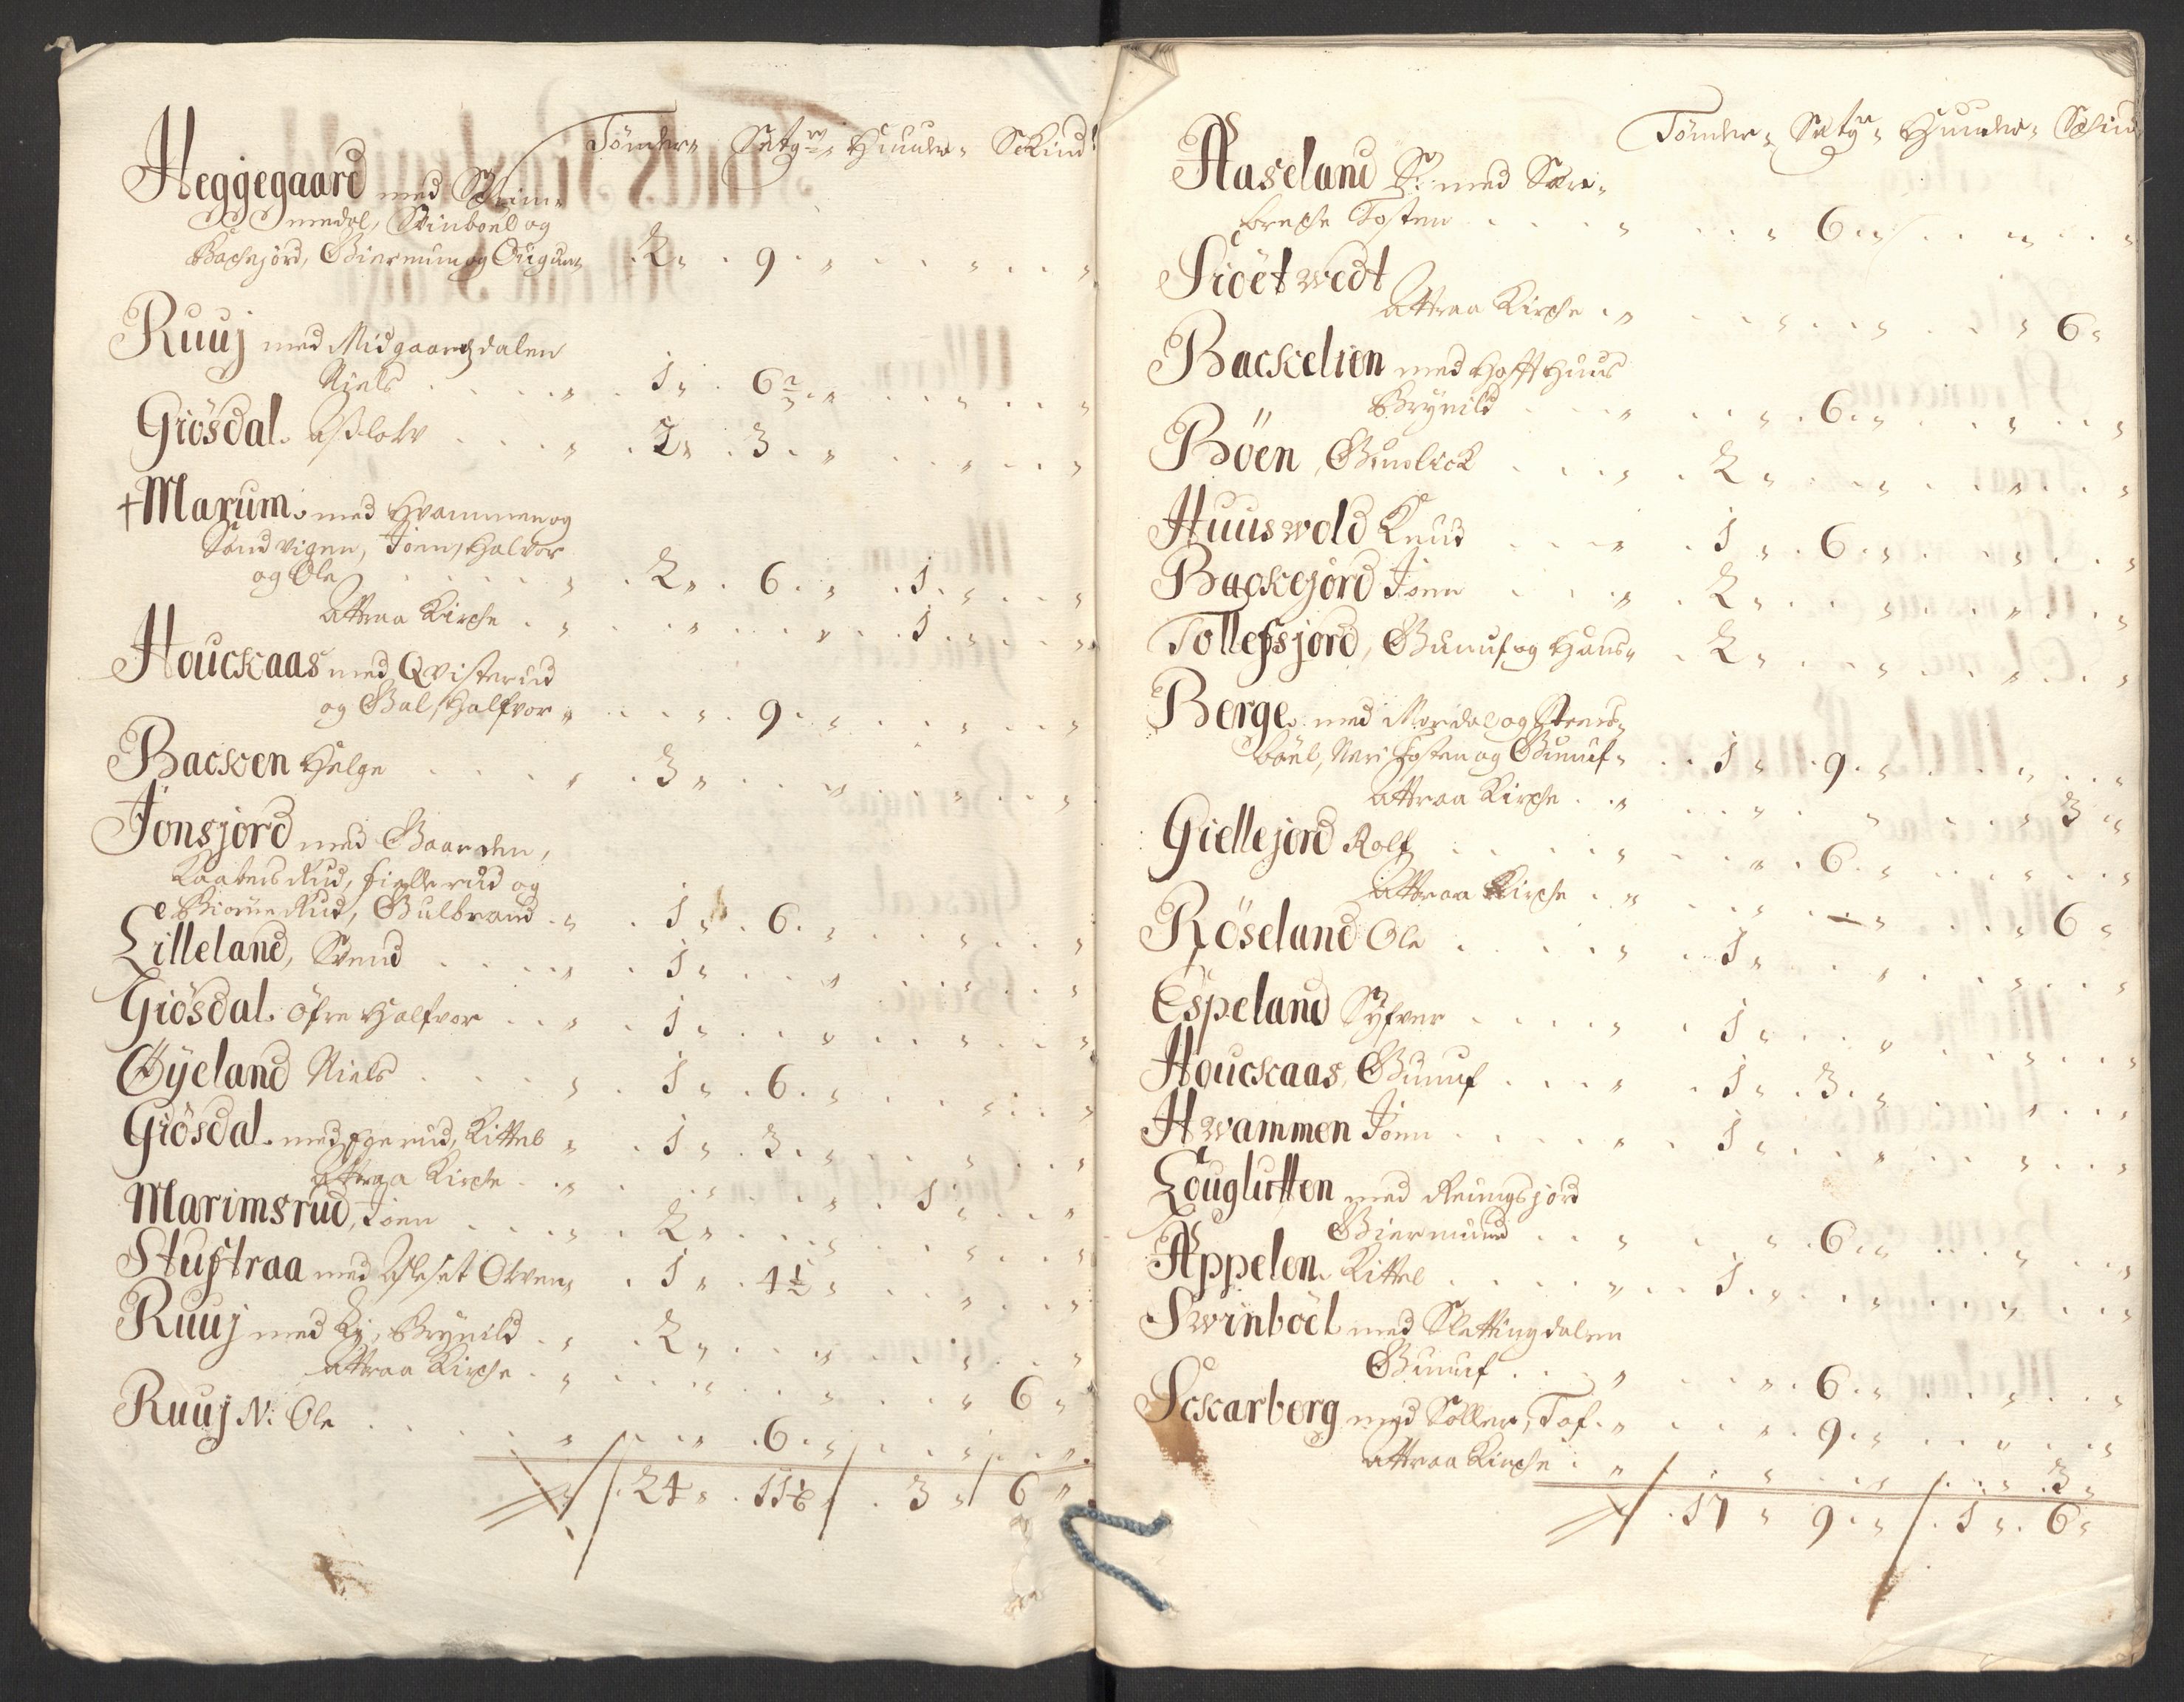 Tönder„ Setg„ Huuder„ Skind
Heggegaard med Skim„
medal, Svinboel og
Backejord, Giermun og Ougun„ 2„ 9„ „ „
Ruuj med Midgaardzdalen
Niels „ 1„ 6½„ „ „
Giösdal. Aslow „ 2„ 3„ „ „
+Marum. med Hvammen og
Sandvigen, Joen, Halvor
og Ole „ 2„ 6„ 1„ „
Attraa Kirche „ „ „ 1„ „
Houckaas med Qvisterud
og Bal, Halfvor „ „ 9„ „ „
Backen Helge „ 3„ „ „ „
Jonsjord med Gaarden,
Kaatens Rud, Fiellerud og
Biörne Rud, Gulbrand „ 1„ 6„ „ „
Lilleland, Svend „ 1„ „ „ „
Giösdal. öfre Halfvor „ 1„ „ „ „
Öyeland Niels „ 1„ 6„ „ „
Giösdal. med Egerud, Kittel „ 1„ 3„ „ „
Attraa Kirche „ „ „ 1„ „
Marimsrud, Joen „ 2„ „ „ „
Stustraa med Aslset Olven„ 1„ 4½„ „ „
Ruuj med Li, Brynild „ 2„ „ „ „
Attraa Kirche „ „ „ „ 6„
Ruuj N: Ole „ „ 6„ „ „
24„ 11½„ 3„ 6„
Tönder„ Setg„ Huuder„ Skind
Aaseland S: med Sore„
brecke Tosten „ „ 6„ „ „
Siöetwedt
Attraa Kirche „ „ „ „ 6„
Backelien med Hoffthuus
Brynild „ „ 6„ „ „
Böen, Gunlick „ 2„ „ „ „
Huuswold Knud „ 1„ 6„ „ „
Backejord Joen „ 2„ „ „ „
Tollefsjord, Gunuf og Hans„ 2„ „ „ „
Berge. med Mordal og Steens„
böel, Neri Tosten og Gunuf„ 1„ 9„ „ „
Attraa Kirche „ „ „ „ 3„
Giellejord Rolf „ „ 6„ „ „
Attraa Kirche „ „ „ „ 6„
Röseland Ole „ 1„ „ „ „
Espeland Syfver „ 1„ „ „ „
Houckaas, Gunuf „ 1„ 3„ „ „
Hwammen Joen „ 1„ „ „ „
Louglutten med Reungsjord
Giermund „ „ 6„ „ „
Appelen. Kittel „ 1„ „ „ „
Swinböel med Slettingdalen
Gunuf „ „ 6„ „ „
Sckarberg med Soller, Tof„ „ 9„ „ „
Attraa Kirche „ „ „ „ 3„
17„ 9„ 1„ 6„